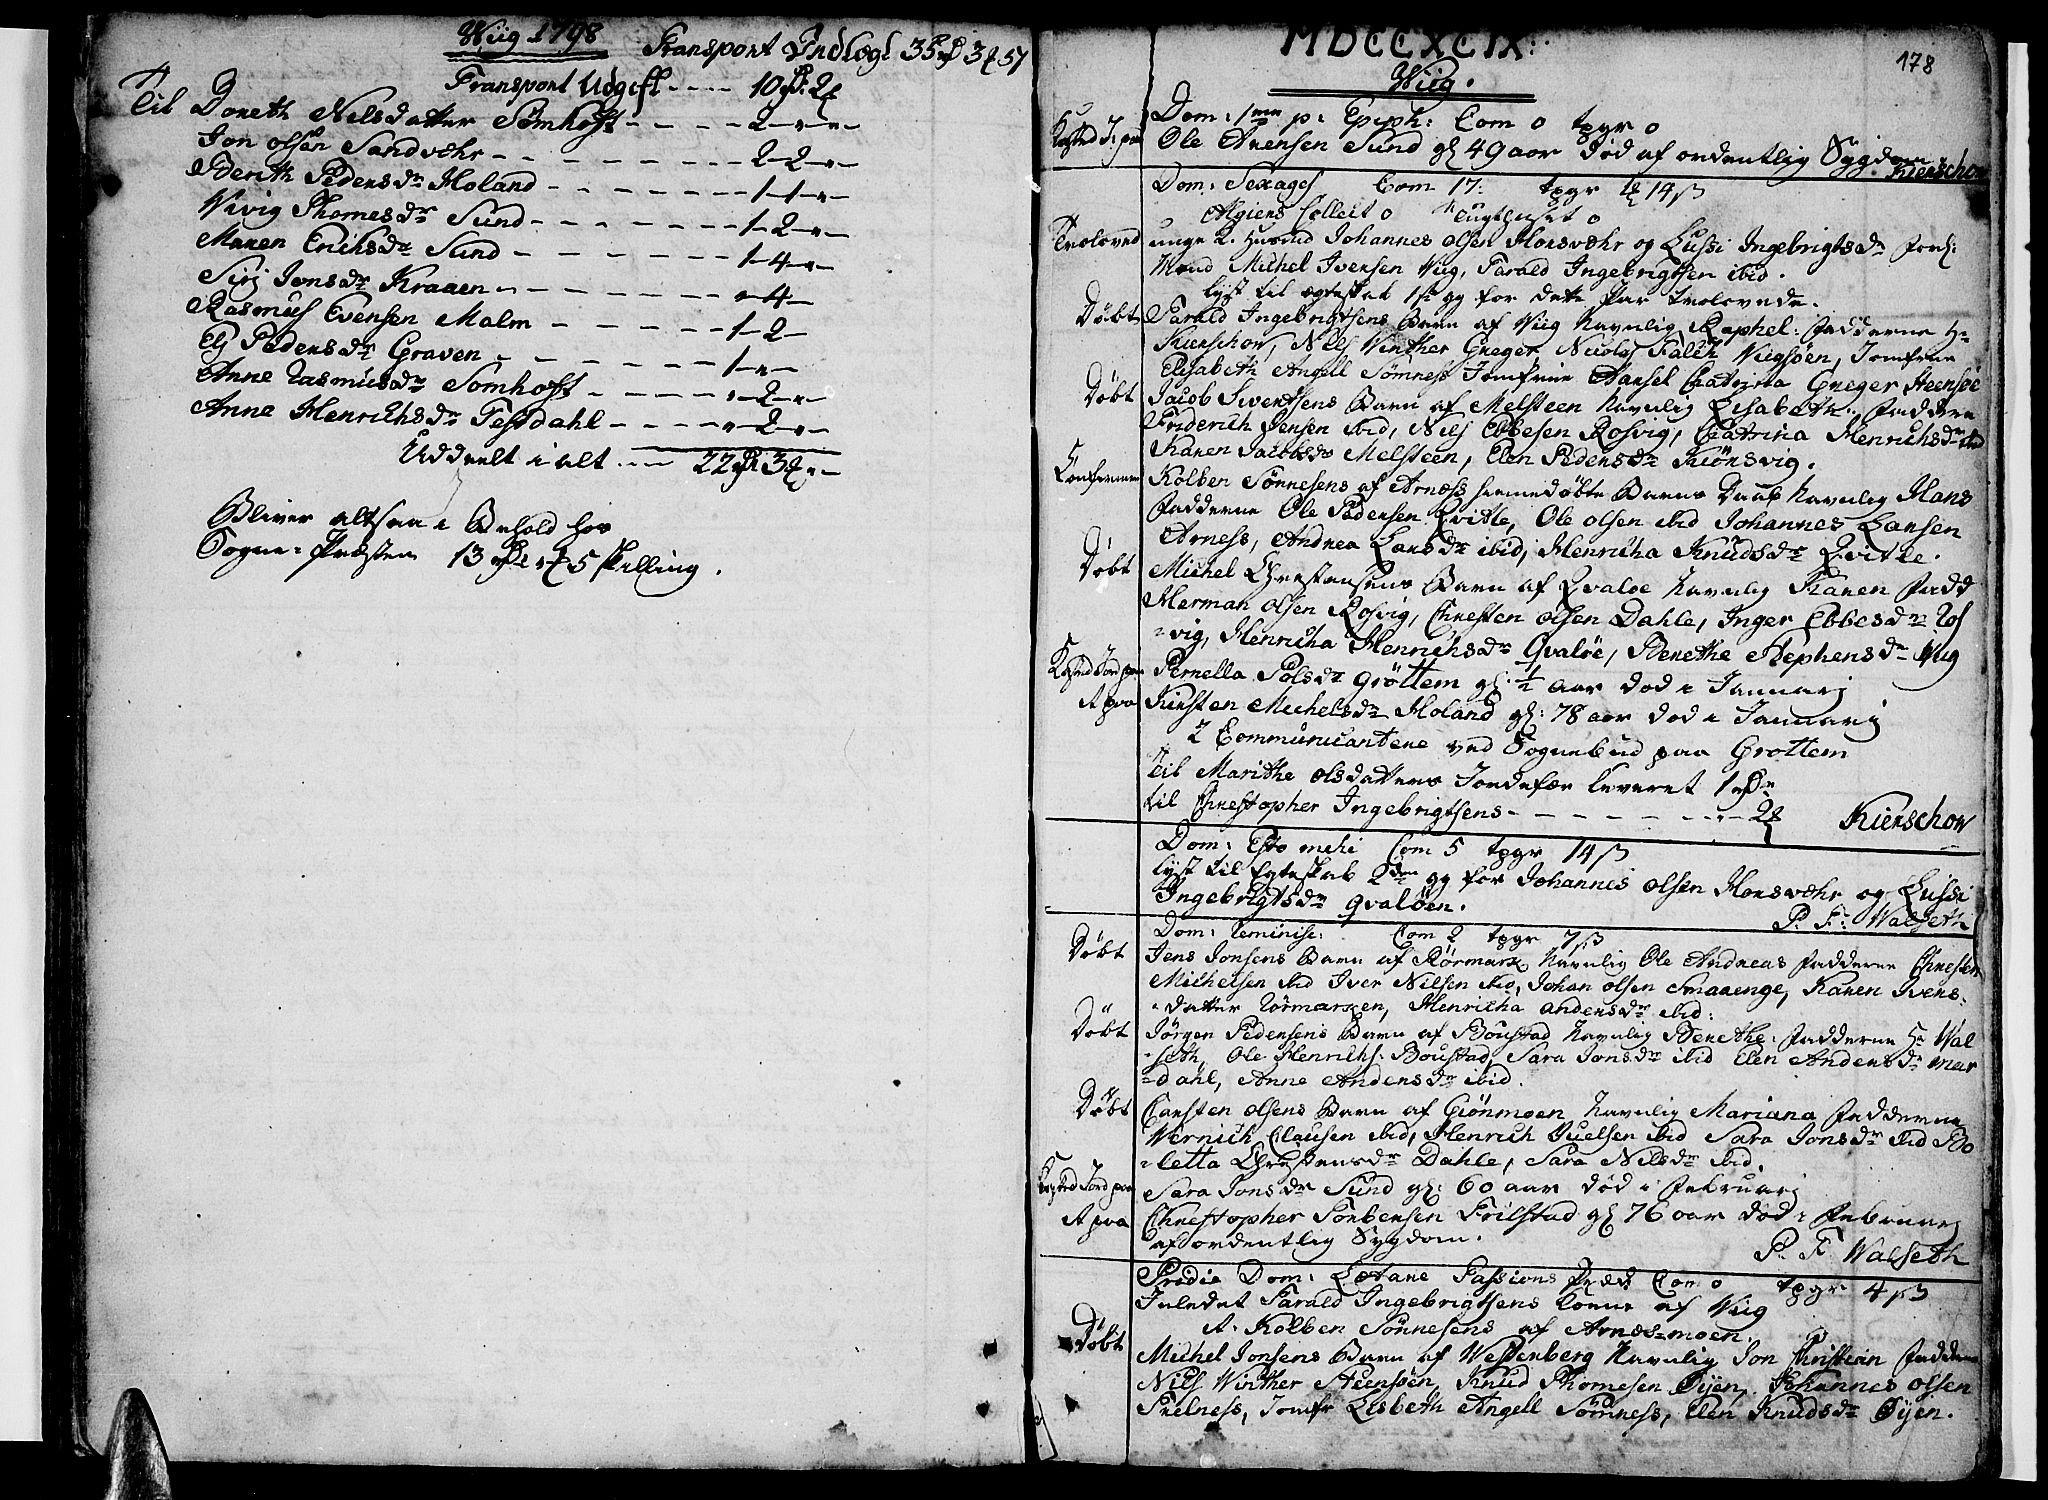 Wiig 1798
Transport Indlagt 35
Transport Udgift - - - - 10
Til Doreth Nilsdatter Sømhofft - - - - 2 - " - " -
Jon olsen Sandvæhr - - - - - - - 2 - 2 - " -
Berith Pedersdr Holand - - - - - - - 1 - 1 - " -
Thomesdr Sund - - - - - - - 1 - 2 - " -
Maren Erichsdr Sund - - - - - - - 1 - 4 - " -
Sirj Jonsdr Kraaen - - - - - - - " - 4 -
Rasmus Evensen Malm - - - - - - 1 - 2 -
Elj Pedersdr Graven - - - - - - 1 - " -
Anne Rasmusdr Somhofft - - - - - " - 2 - " -
Anne Henrichsdr Festdahl - - - - " - 2 - " -
Uddeelt i alt - - - 22
Bliver altsaa i Behold hos
Sogne-Præsten 13 5 skilling.
MDCCXCIX:
178
Wiig.
Dom: 1ma p: Epiph: Com 0 tpgr 0
Kasted J: paa Ole Arensen Sund gl 49 aar død af ordentlig Sygdom
Kierschow
Dom: Sexages Com 17: tpgr 14 ß
Algiers Collect 0 Tugthuset 0
Troloved unge K. Johannes olsen Horsvæhr og Lussi Ingebrigtsdr
Michel Iversen Wiig, Tarald Ingebrigtsen ibid.
lyst til ægteskab 1ste gg for dette Par trolovede.
Døbt Tarald Ingebrigtsens Barn af Wiig navnlig Raphel: Fadderne Hr
Kierschow, Nils Winther Greger, Nicolaj Falch Wiigsøen, Jomfrue
Elisabeth Angell Sømness Jomfrue Catrina Greger Steensøe
Døbt Jacob Sivertsens Barn af Melsteen navnlig Lisabeth: Faddere
Friderich Jensen ibid, Nils Ebbesen Rosvig, Catrina Henrichsdr ibid
Karen Jacobsdr Melsteen, Elen Pedersdr Kiønsvig.
Confermeret Kolben Sønnesens af Arness hiemedøbte Barns Daab navnlig Hans
Fadderne Ole Pedersen Qvitle, Ole olsen ibid Johannes Larsen
Arness, Andrea Larsdr ibid, Henricha Knudsdr Qvitle.
Døbt Michel Christensens Barn af Qvaløe navnlig Karen Fadd
Herman olsen Rosvig, Christen olsen Dahle, Inger Ebbesdr Ros
=vig, Henricha Henrichsdr Qvaløe, Berethe Stephensdr Wiig
Kasted Jord paa Pernella Polsdr Grøttem gl: 1/2 aar død i Januarj
it paa Kirsten Michelsdr Holand gl: 78 aar død i Januarj
2 Communicantere ved Sognebud paa Grøttem
Til Marithe olsdatters Jordefær leveret 1
til Christopher Ingebrigtsens - - - - - - - - - 2
Kierschow
Dom: Esto mihi Com 5 tpgr 14 ß
lyst til Egteskab 2den gg for Johannes olsen Horsvæhr og Lussi
Ingebrigtsdr Qvaløen.
P. F: Walseth
Dom: Reminisc: Com 2 tpgr 7 ß
Døbt Jens Jonsens Barn af Rørmark navnlig Ole Andreas Fadderne Christen
Michelsen ibid Iver Nilsen ibid, Johan olsen Smaaenge, Karen Ivers-
=datter Rørmarken, Henricha andersdr ibid:
Døbt Jørgen Pedersens Barn af Boustad navnlig Berethe: Fadderne Hr Wal
=seth, Ole Henrichs. Boustad, Sara Jonsdr ibid Elen Andersdr Mar
=dahl, Anne Andersdr ibid.
Døbt Carsten olsens Barn af Giønmoen navnlig Mariana Fadderne
Wernich Clausen ibid, Henrich Juelsen ibid Sara Jonsdr ibid Bo
=letta Christensdr Dahle, Sara Nilsdr ibid.
Kasted Jord paa Sara Jonsdr Sund gl: 60 aar død i Februarj
it paa Christopher Torbersen Frilstad gl 76 aar død i Februarj
af ordentlig Sygdom.
P. F. Walseth
Pridie Dom: Lætare Passions Præd Com 0 tpgr 4 ß
Inledet Tarald Ingebrigtsens Kone af Wiig
it. Kolben Sønnesens af Arnes=moen.
Døbt Michel Jonsens Barn af Westenberg navnlig Jon Christian Faddere
Nils Winther Steensøen, Knud Thomesen Øijen, Johannes olsen
Prelness, Jomfr Lisbeth Angell Sømness, Elen Knudsdr Øijen.